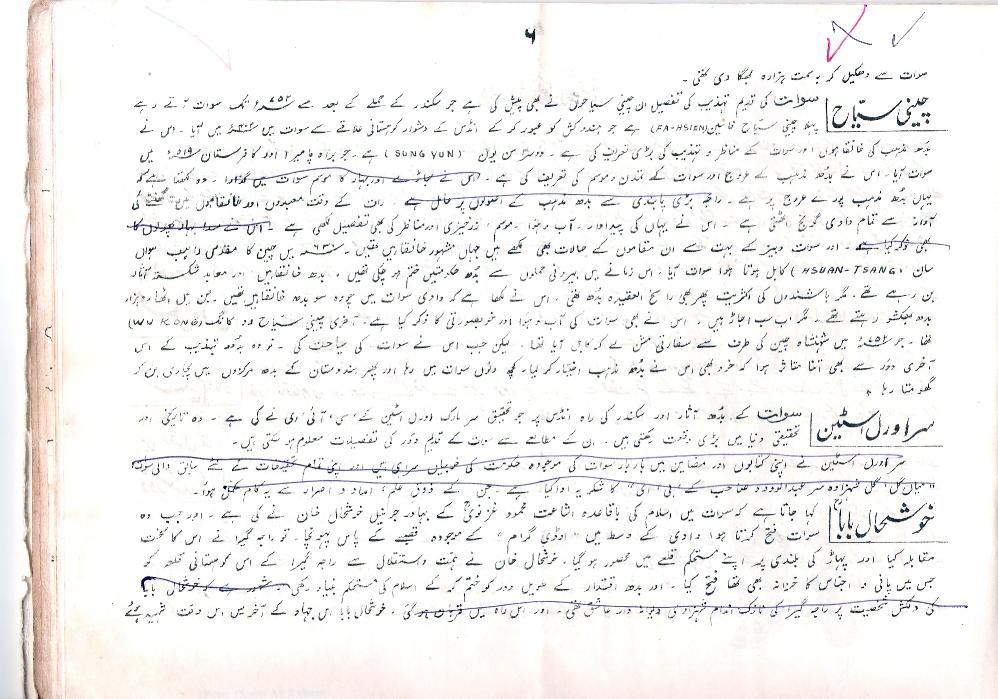 ۶
سوات سے دھکیل کر بہ سمت ہزارہ بھگا دی گئی ۔
چینی سیّاح سوات کی قدیم تہذیب کی تفصیل ان چینی سیاحوں نے بھی پیش کی ہے جو سکندر کے حملے کے بعد سے ۷۵۲ء تک سوات آتے رہے
پہلا چینی سیّاح فاہین (FA-HSIEN) ہے جو ہندوکش کو عبور کر کے انڈس کے دشوار کوہستانی علاقے سے سوات میں آیا ۔ اس نے
بدھ مذہب کی خانقاہوں اور سوات کے مناظر و تہذیب کی بڑی تعریف کی ہے ۔ دوسرا سن یون (SUNG YUN) ہے ۔ جو براہ پامیر اور کافرستان ۵۱۹ء میں
سوات آیا ۔ اس نے بدھ مذہب کے عروج اور سوات کے تمدن و موسم کی تعریف کی ہے ۔ اس نے جاڑے اور بہار کا موسم سوات میں گذارا ۔ وہ لکھتا ہے کہ
یہاں بدھ مذہب پورے عروج پر ہے ۔ راجہ بڑی پابندی سے بدھ مذہب کے اصولوں پر عامل ہے ۔ رات کے وقت معبدوں اور خانقاہوں میں گھنٹے کی
آواز سے تمام وادی گونج اٹھتی ہے ۔ اس نے یہاں کی پیداوار ۔ آب و ہوا ۔ موسم ، زرخیزی اور مناظر کی بھی تفصیل لکھی ہے ۔ اس نے سدا بہار پھولوں کا
بھی ذکر کیا ہے ۔ اور سوات و بنیر کے بہت سے ان مقاموں کے حالات بھی لکھے ہیں جہاں مشہور خانقاہیں تھیں ۔ ۶۳۰ء میں چین کا مقدس راہب ہوان
سان (HSUAN-TSANG) کابل ہوتا ہوا سوات آیا ، اس زمانے میں بیرونی حملوں سے بدھ حکومتیں ختم ہو چکی تھیں ، بدھ خانقاہیں اور معابد شکستہ آثار
بن رہے تھے ۔ مگر باشندوں کی اکثریت پھر بھی راسخ العقیدہ بدھ تھی ۔ اس نے لکھا ہے کہ وادی سوات میں چودہ سو بدھ خانقاہیں تھیں ۔ جن میں اٹھارہ ہزار
بدھ بھکشو رہتے تھے ۔ مگر اب سب اجاڑ ہیں ۔ اس نے بھی سوات کی آب و ہوا اور خوبصورتی کا ذکر کیا ہے ۔ آخری چینی سیّاح وو کانگ (WU KONG)
تھا ۔ جو ۷۵۲ء میں شہنشاہ چین کی طرف سے سفارتی مشن لے کر کابل آیا تھا ۔ لیکن جب اس نے سوات کی سیاحت کی ۔ تو وہ بدھ تہذیب کے اس
آخری دور سے بھی اتنا متاثر ہوا کہ خود بھی اس نے بدھ مذہب اختیار کر لیا ۔ کچھ دنوں سوات میں رہا اور پھر ہندوستان کے بدھ مرکزوں میں پجاری بن کر
گھومتا رہا ۔
سر اورل اسٹین سوات کے بدھ آثار اور سکندر کی راہ انڈس پر جو تحقیق سر مارک اورل اسٹین کے ، سی ، آئی ، ای نے کی ہے ۔ وہ تاریخی اور
تحقیقی دنیا میں بڑی وقعت رکھتی ہیں ۔ ان کے مطالعے سے سوات کے قدیم دور کی تفصیلات معلوم ہو سکتی ہیں ۔
سر اورل اسٹین نے اپنی کتابوں اور مضامین میں بار بار سوات کی موجودہ حکومت کی خوبیاں سراہی ہیں اور اپنی تمام تحقیقات کے لئے سابق والی سوات
"میاں گل ، گل شہزادہ سر عبدالودود صاحب کے ، بی ، ای" کا شکریہ ادا کیا ہے ۔ جن کے ذوق علم ، امداد و اصرار سے یہ کام مکمل ہوا ۔
خوشحال بابا کہا جاتا ہے کہ سوات میں اسلام کی باقاعدہ اشاعت محمود غزنوی کے بہادر جرنیل خوشحال خان نے کی ہے ۔ اور جب وہ
سوات فتح کرتا ہوا وادی کے وسط میں "اوڈی گرام" کے موجودہ قصبے کے پاس پہونچا ۔ تو راجہ گیرا نے اس کا سخت
مقابلہ کیا اور پہاڑ کی بلندی پر اپنے مستحکم قلعے میں محصور ہو گیا ۔ خوشحال خان نے ہمت و استقلال سے راجہ گیرا کے اس کوہستانی قلعہ کو
جس میں پانی و اجناس کا خزانہ بھی تھا فتح کیا ۔ اور بدھ اقتدار کے طویل دور کو ختم کر کے اسلام کی مستحکم بنیاد رکھی ۔ مشہور ہے کہ خوشحال بابا
کی دلکش شخصیت پر راجہ گیرا کی نازک اندام شہزادی دیوانہ وار عاشق تھی ۔ اور اس راہ میں قربان ہو گئی ۔ خوشحال بابا اس جہاد کے آخر میں اس وقت شہید ہوئے